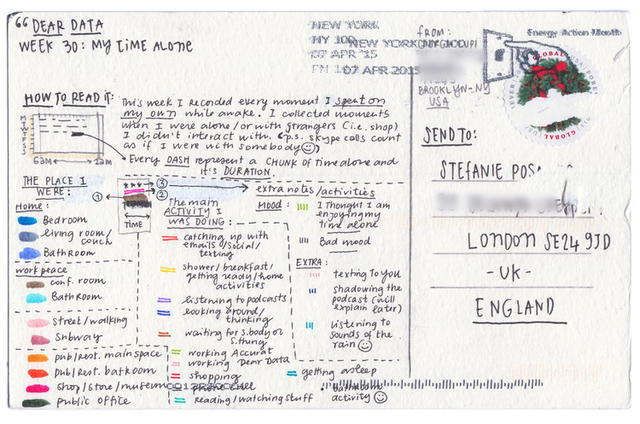 “ DEAR DATA
WEEK 30: MY TIME ALONE
HOW TO READ IT:
M
T
W
T
F
S
S
6AM
2AM
This week I recorded every moment I spent on
my own while awake. I collected moments
when I were alone/or with strangers (i.e. shop)
I didn't interact with. & p.s. skype calls count
as if I were with somebody
Every DASH represent a CHUNK OF TIME alone and
it's DURATION.
THE PLACE I
WERE:
1
3
2
TIME
Home:
Bedroom
living room/
couch
Bathroom
work peace
conf. room
Bathroom
street/walking
Subway
pub/rest. main space
pub/rest. bathroom
shop/store/museum
public office
The main
ACTIVITY I
WAS DOING:
catching up with
emails/social/
texting
shower/breakfast/
getting ready/home
activities
listening to podcasts
looking around/
thinking
waiting for s.body or
s.thing
working Accurat
working Dear Data
shopping
phone call
reading/watching stuff
getting asleep
bathroom
activity
extra notes/activities
MOOD:
I thought I am
enjoying my
time alone
Bad mood
EXTRA:
texting to you
shadowing the
podcast (will
explain later)
listening to
sounds of the
rain
NEW YORK
NY 100
07 APR '15
NEW YORK NY 100
07 APR 2015
FROM:
BROOKLYN-NY
USA
Energy Action Month
GLOBAL
SEND TO:
STEFANIE POS
LONDON SE24 9JD
-UK-
ENGLAND